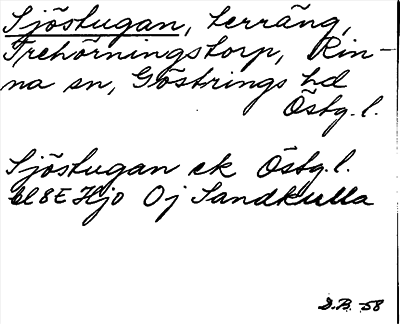 Sjöstugan, terräng,
Trehörningstorp, Rin-
na sn, Göstrings hd
Östg. l.
Sjöstugan ek Östg. l.
bl 8E Hjo Oj Sandkulla
D.B. -58